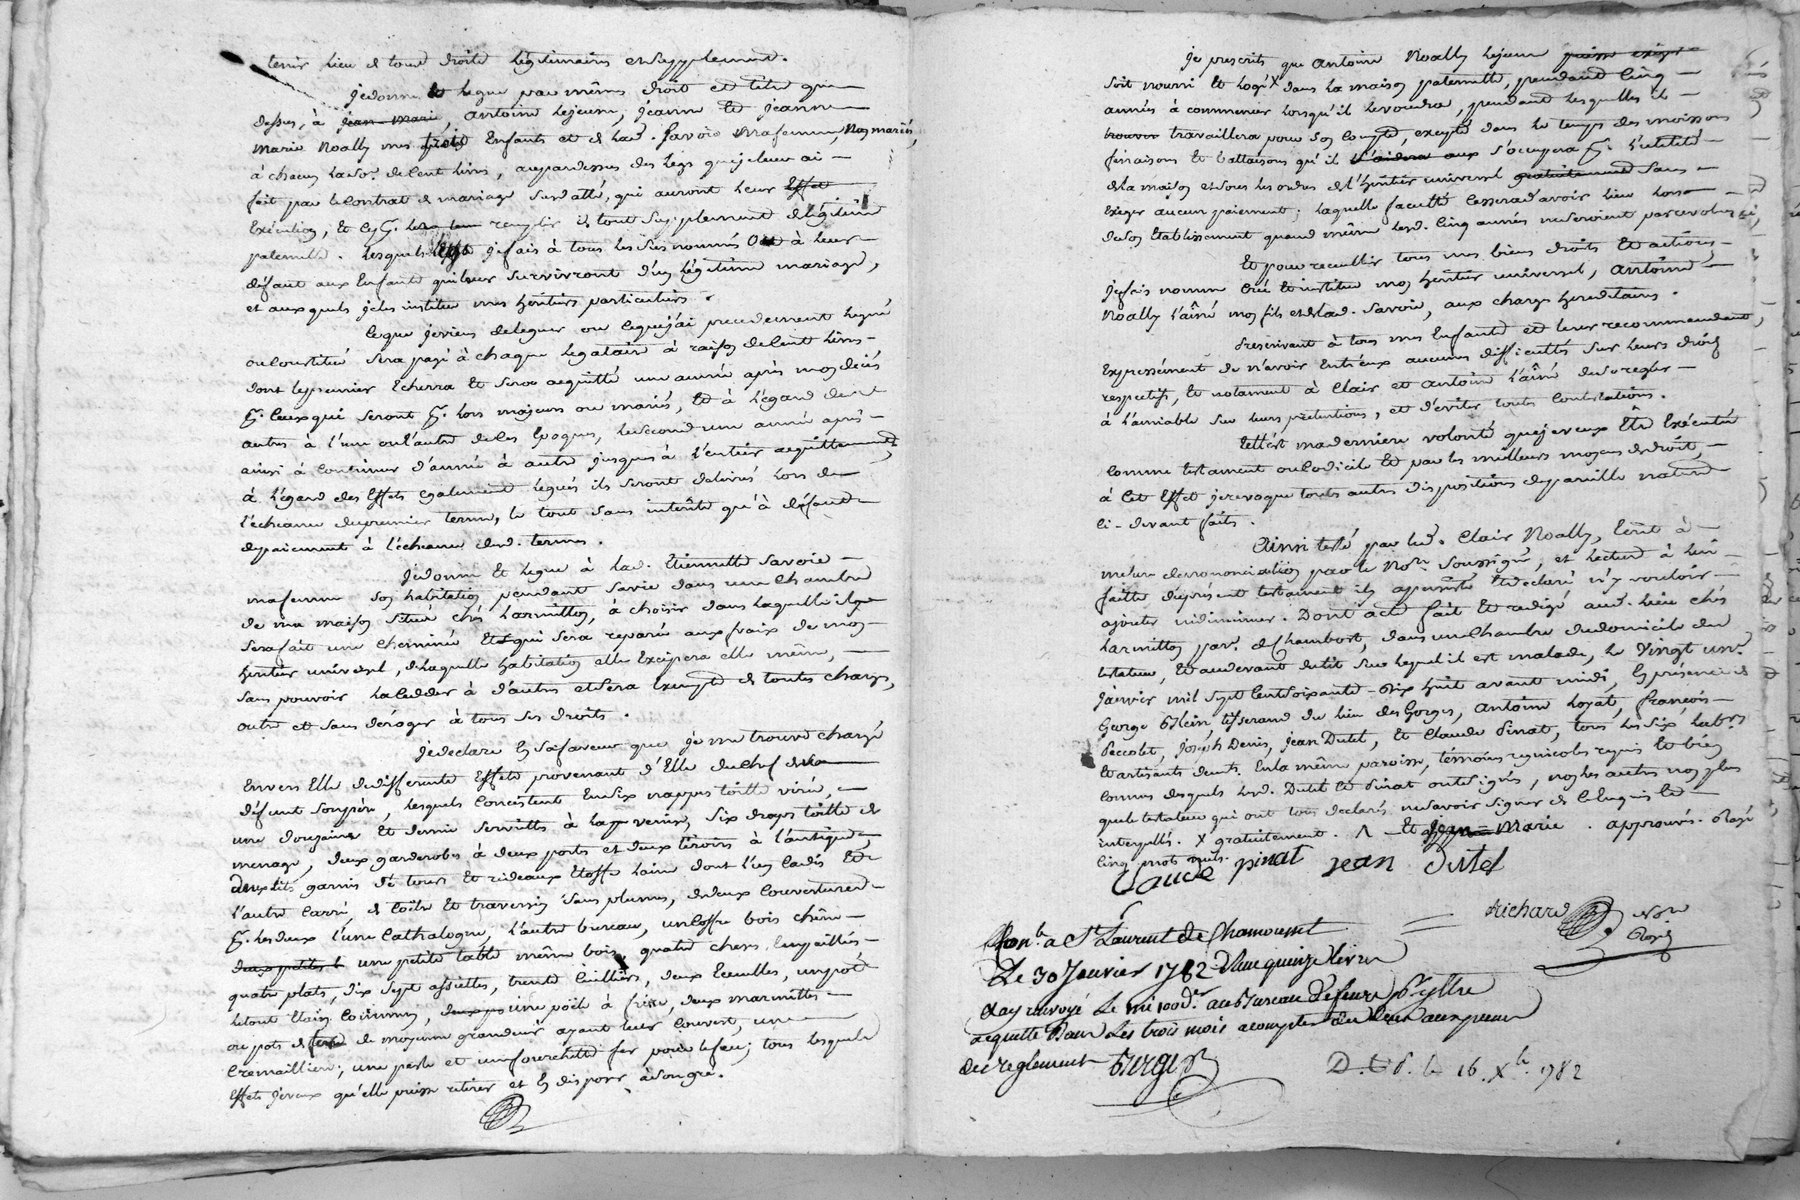 tenir lieu de tous droits légitimaires et supplement.
Je donne et legue par mêmes droit et titre que
dessus, à Jean Marie, Antoine Lejeune, Jeanne et Jeanne
Marie Noally mes trois Enfants et de lad. Savoie ma femme, Non mariés,
à chacun la so.e de Cent livres, aupardessus des legs que je leur ai
fait par le contrat de mariage susdatté, qui auront leur Effet
Exécution, et pr. remplir de tout supplement de légitime
paternelle. lesquels legs je fais à tous les susnommés ou à leur
défaut aux Enfants qui leur survivront d'un légitime mariage,
et auxquels je les institue mes heritiers particuliers.
Ce que je viens de leguer ou ce que j'ai precedement legué
ou constitué sera payé à chaque legataire à raison de Cent livres
dont le premier Echerra et sera acquitté une année après mon décès
pr. Ceux qui seront pr. lors majeurs ou mariés, et à l'égard des
autres à l'une ou l'autre de ces Epoques, le second une année après
ainsi à continuer d'année à autre jusques à l'entier acquittement,
à l'égard des Effets egalement legués ils seront delivrés lors de
l'echeance du premier terme, le tout sans intérêts qu'à défaut
de paiement à l'écheance desd. termes.
Je donne et legue à lad. Etiennette Savoie
ma femme son habitation pendant sa vie dans une Chambre
de ma maison située chés Larmitton, à choisir dans laquelle il
sera fait une cheminée et qui sera reparée aux fraix de mon
heritier universel, de laquelle habitation elle Excipera elle même,
sans pouvoir la ceder à d'autres et sera Exempte de toutes charges,
outre et sans déroger à tous ses droits.
Je declare en sa faveur que je me trouve chargé
Envers Elle de differents Effets provenant d'Elle du chef de
défunt son père, lesquels consistent En six nappes toille virée,
une douzaine et demie serviettes à la venise, six draps toille de
menage, deux garderobes à deux portes et deux tiroirs à l'antique,
deux lits garnis de tours et rideaux Etoffe laine dont l'un cadis et
l'autre Carré, de coitre et traversin sans plumes, de deux couvertures
pr. les deux l'une Cathalogne, l'autre bureau, un coffre bois chêne
deux petites t une petite table même bois, quatre cheres Empaillées
quatre plats, dix sept assiettes, trente cuilliers, deux Ecuelles, un pot
le tout Etain commun, une poile à frire, deux marmittes
ou pots de fer de moyenne grandeur ayant leur couvert, une
Cremailliere, une pesle et une fourchette fer pour le feu; tous lesquels
Effets je veux qu'elle puisse retirer et en disposer à son gré.
Je prescrits que Antoine Noally Lejeune puisse exiger
soit nourri et logé X dans la maison paternelle, pendant Cinq
années à commencer lorsqu'il le voudra, pendant lesquelles il
trouver travaillera pour son compte, excepté dans le temps des moissons
fenaisons et battaisons qu'il s'occupera pr. l'utilité
de la maison et sous les ordres de l'héritier universel gratuitement sans
Exiger aucun paiement; laquelle faculté cessera d'avoir lieu lors
de son Etablissement quand même lesd. Cinq années ne seroient pas revolues
Et pour recueillir tous mes biens droits et actions,
Je fais nomme Créé et institue mon héritier universel, Antoine
Noally l'aîné mon fils et de lad. Savoie, aux charges hereditaires.
Prescrivant à tous mes Enfants et leur recommandant
Expressément de n'avoir Entr'eux aucunes difficultés sur leurs droits
respectifs, et notament à Clair et Antoine l'aîné de se regler
à l'amiable sur leurs pretentions, et d'éviter toutes Contestations.
Tell'est ma derniere volonté que je veux Etre Exécutée
comme testament ou Codicile et par les meilleurs moyens de droit,
à Cet Effet je revoque toutes autres dispositions de pareille nature
Ci-devant faites.
Ainsi testé par led. Clair Noally, Ecrit à
mesure de prononciation par le Nore soussigné, et lecture à lui
faitte du présent testament il y a persisté et declaré n'y vouloir
ajouter ni diminuer. Dont acte fait et redigé aud. lieu chés
Larmitton par. de Chambost, dans une Chambre du domicile du
testateur, et au devant du lit sur lequel il est malade, le vingt un
Janvier mil sept Cent soixante-dix huit avant midi, En présence de
George Blein, tisserand du lieu des Gorges, Antoine Loyat, François
Peccolet, Joseph Denis, Jean Dutel, et Claude Pinat, tous les six hab.rs
et artisants demts. En la même paroisse, témoins regnicoles requis et bien
connus desquels lesd. Dutel et Pinat ont signés, non les autres non plus
que le testateur qui ont tous declarés ne savoir signer de Ce Enquis et
interpellés. X gratuitement. Λ Et Jean-Marie. approuvés. Rayé
Cinq mots nuls.
Claude pinat jean Dutel
Richard Nore
Roy.
Con.lé a St Laurent de Chamousset
Le 30 Janvier 1782 Reçu quinze livres
acquitté Dans Les trois mois a compter du
de reglement
D. C. d. le 16. Xbre 1782